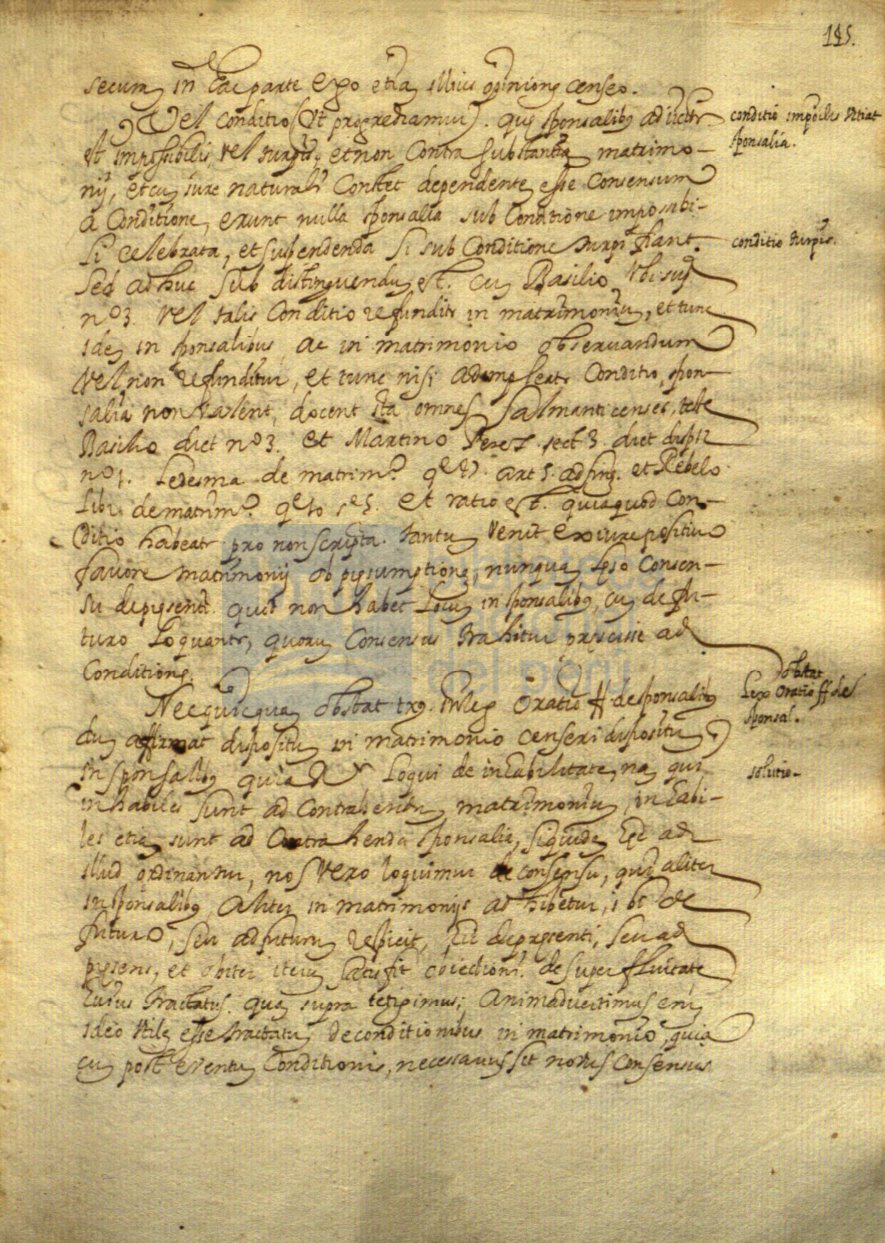 115.
secura in hac parte ergo etia illius opinione censeo.
Vel conditio (ut progrediamur). que sponsalibus
est impossibilis, vel turpis, et non contra substantia matrimo-
nij, et cu iure naturali constet dependente esse consensum
a conditione, erunt nulla sponsalia sub conditione imposibi-
li celebrata, et suspendenda si sub conditione turpi fiant.
sed adhuc sub distinguendu est. cu Basilio ubi sup
nº 3. vel talis conditio refundit in matrimoniu, et tunc
ide in sponsalibus, ac in matrimonio observandum
vel non refunditur, et tunc nisi conditio, spon-
salia non valent, docent ita omnes salmanticenses, teste
Basilio dict nº 3. et Martino Perez. sect 3. dict disp
nº 1. Ledesma de matrimº art 5. ad fin. et Rebelo
lib. de matrimº et ratio est. quia quod con-
ditio habeatr pro non scripta. tantu venit ex iure positivo
favore matrimonij ob presumptione, nunqua ipso consen-
su de presenti. quod non habet locu in sponsalibus, cu de fu-
turo loquantr, quoru consensus trahitur precisse ad
conditione.
Nec quicqua obstat tex. in leg Oratio ff de sponsalibus
du affirmat dispositu in matrimonio censeri dispositu
in sponsalibus quia loqui de inhabilitate, na qui
inhabiles sunt ad contrahendu matrimoniu, inhabi-
les etia sunt ad contrahenda sponsalia, siquide hec ad
illud ordinantur, nos vero loquimur de consensu, qui aliter
in sponsalibus, aliter in matrimonijs adhibetur, ibi de
futuro, seu ad futuru respicit, hic de presenti, seu ad
presens, et obiter iteru satisfit obiectioni. de superfluitate
huius tractatus. qua supra tetigimus; animadvertimus eni
ideo utile esse tractatu de conditionibus in matrimonio, quia
cu post eventu conditionis, necessarius sit novus consensus
conditio impossibilis vitiat
sponsalia.
conditio turpis.
obstat
Lex Oratio ff de
sponsal.
solutio-
Biblioteca
Nacional
del Perú